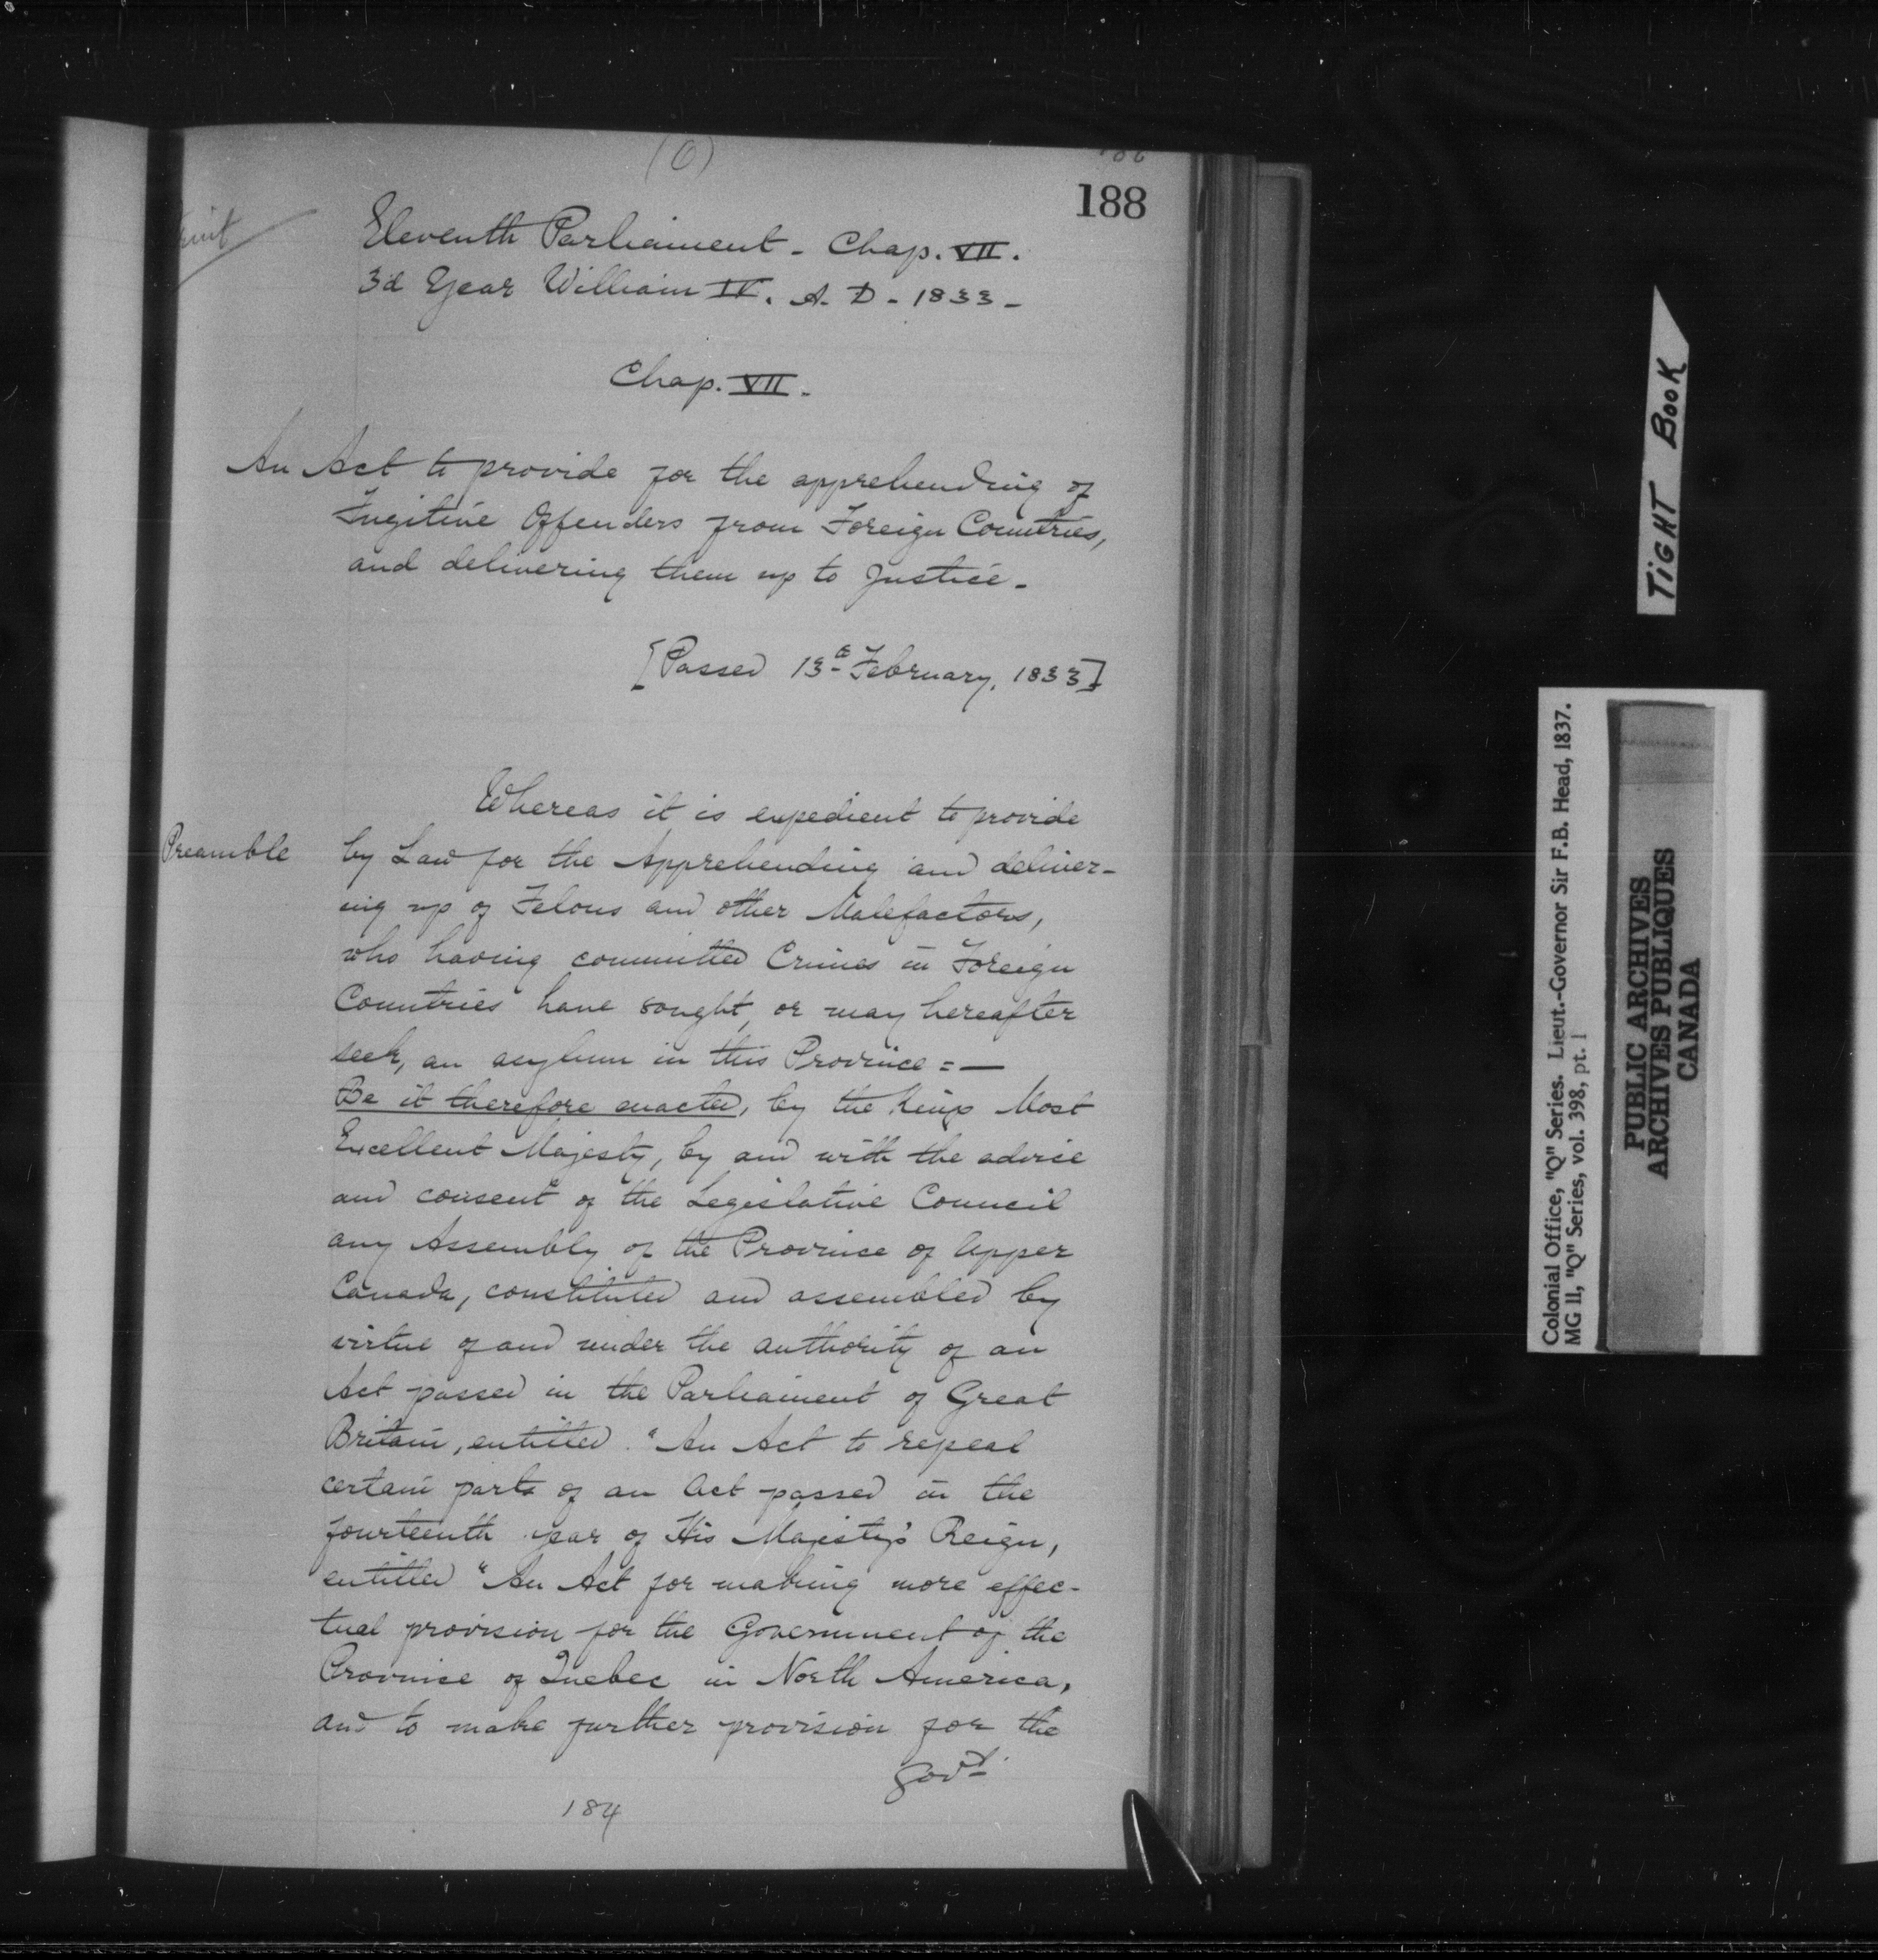 (6)
188
Eleventh Parliament - Chap. VII.
3d Year William IV. A. D - 1833 -
Chap. VII.
An Act to provide for the apprehending of
Fugitive Offenders from Foreign Countries,
and delivering them up to Justice -
[Passed 13th February, 1833]
Whereas it is expedient to provide
Preamble by Law for the Apprehending and deliver-
ing up of Felons and other Malefactors,
who having committed Crimes in Foreign
Countries have sought, or may hereafter
seek, an asylum in this Province = —
Be it therefore enacted, by the Kings Most
Excellent Majesty, by and with the advice
and consent of the Legislative Council
any Assembly of the Province of Upper
Canada, constituted and assembled by
virtue of and under the authority of an
Act passed in the Parliament of Great
Britain, entitled "An Act to repeal
certain parts of an Act passed in the
fourteenth year of His Majesty's Reign,
entitled "An Act for making more effec-
tual provision for the Government of the
Province of Quebec in North America,
and to make further provision for the
Govt
184
TIGHT BOOK
Colonial Office, "Q" Series. Lieut.-Governor Sir F.B. Head, 1837.
MG 11, "Q" Series, vol. 398, pt. 1
PUBLIC ARCHIVES
ARCHIVES PUBLIQUES
CANADA